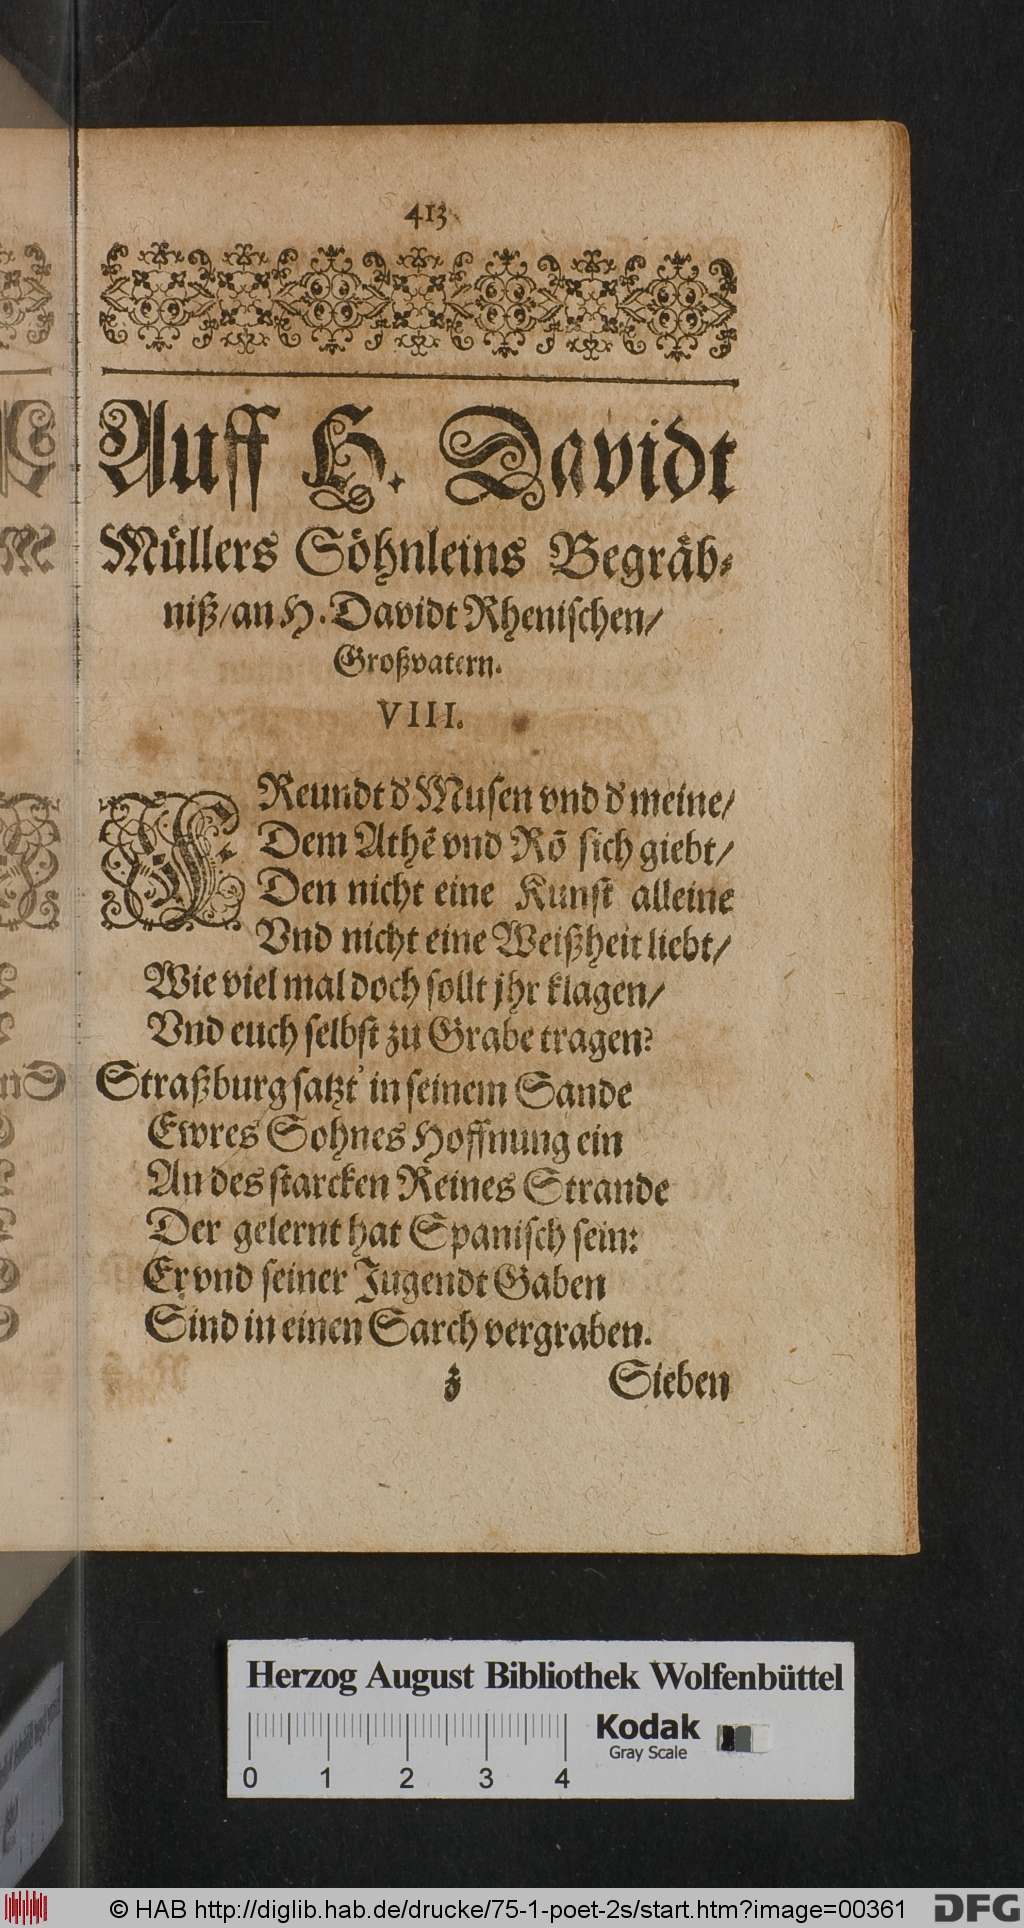 413
Auff H. Davidt
Müllers Söhnleins Begräb⸗
niß/an H. Davidt Rhenischen/
Großvatern.
VIII.
FReundt d' Musen vnd d' meine/
Dem Athē vnd Rō sich giebt/
Den nicht eine Kunst alleine
Vnd nicht eine Weißheit liebt/
Wie viel mal doch sollt jhr klagen/
Vnd euch selbst zu Grabe tragen?
Straßburg satzt' in seinem Sande
Ewres Sohnes Hoffnung ein
An des starcken Reines Strande
Der gelernt hat Spanisch sein:
Er vnd seiner Jugendt Gaben
Sind in einen Sarch vergraben.
z Sieben
Herzog August Bibliothek Wolfenbüttel
Kodak
Gray Scale
0 1 2 3 4
© HAB http://diglib.hab.de/drucke/75-1-poet-2s/start.htm?image=00361
DFG